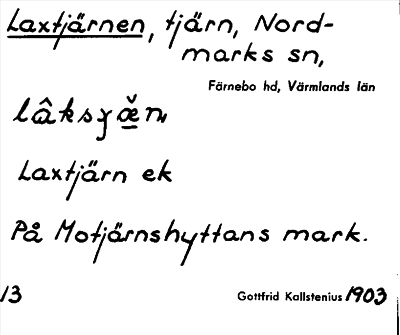 Laxtjärnen, tjärn, Nord-
marks sn,
Färnebo hd, Värmlands län
Laxtjärn ek
På Motjärnshyttans mark.
13 Gottfrid Kallstenius 1903